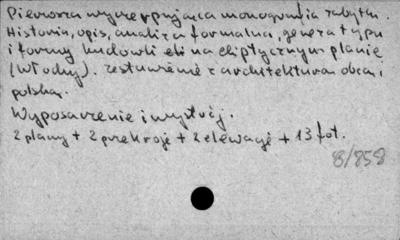 Pierwsza wyczerpująca monografia zabytku.
Historia, opis, analiza formalna, geneza typu
i formy budowli na eliptycznym planie
(Włochy). zestawienie z architekturą obcą i
polską.
Wyposażenie i wystrój.
2 plany + 2 przekroje + 2 elewacje + 13 fot.
8/858